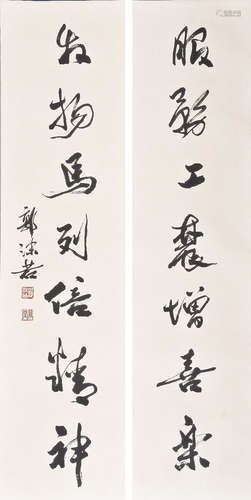 服務工農增喜樂
揚馬列倍精神
郭沫若